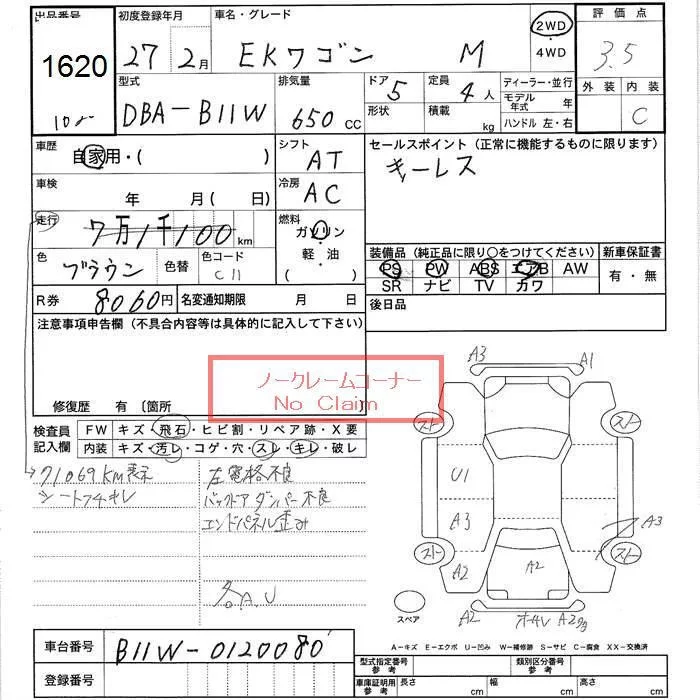 出品番号 初度登録年月 車名・グレード 評価点
1620 27年 2月 EKワゴン M 2WD ・ 4WD 3.5
型式 排気量 ドア 定員 ディーラー・並行 外装 内装
DBA-B11W 650 CC 5 4人 モデル年式 年 C
形状 積載 kg ハンドル 左・右
車歴 自家用・( ) シフト AT セールスポイント (正常に機能するものに限ります)
キーレス
車検 年 月 ( 日) 冷房 AC
走行 7万1千100 km 燃料 ガソリン・軽・油 ( )
装備品 (純正品に限り○をつけてください) 新車保証書
色 ブラウン 色替 色コード C11
PS PW ABS エアB AW 有・無
SR ナビ TV カワ
R券 8060円 名変通知期限 月 日 後日品
注意事項申告欄 (不具合内容等は具体的に記入して下さい)
ノークレームコーナー
No Claim
修復歴 有 〔箇所
検査員記入欄 FW キズ・飛石・ヒビ割・リペア跡・X要
内装 キズ・汚レ・コゲ・穴・スレ・キレ・破レ
71069KM表示 左電格不良
バックドアダンパー不良
エンドパネル歪み
各A.U
A3 A1
スト スト
U1
A3 A3
スト スト
A2 A2
スペア A2
A-キズ E-エクボ U-凹み W-補修跡 S-サビ C-腐食 XX-交換済
車台番号 B11W-0120080
登録番号
型式指定番号 参考 類別区分番号 参考
車庫証明用 参考 長さ cm 幅 cm 高さ cm